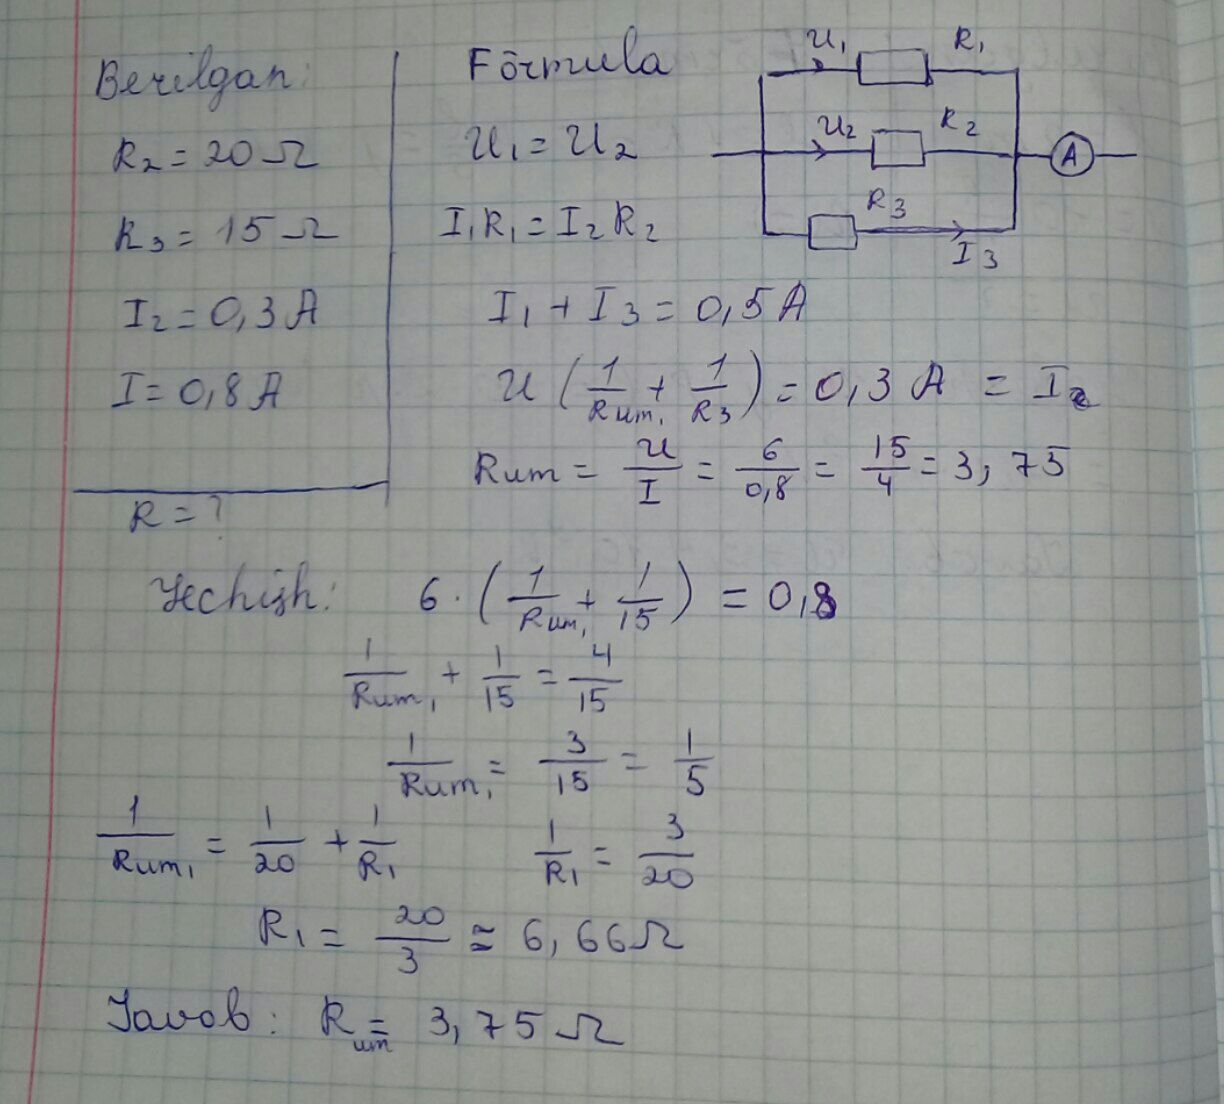 Berilgan:
R₂ = 20 Ω
R₃ = 15 Ω
I₂ = 0,3 A
I = 0,8 A
R = ?
Formula
U₁ = U₂
I₁R₁ = I₂R₂
I₁ + I₃ = 0,5 A
U (1/Rum₁ + 1/R₃) = 0,3 A = I₂
Rum = U/I = 6/0,8 = 15/4 = 3,75
U₁ R₁
U₂ R₂
A
R₃
I₃
Yechish: 6 · (1/Rum₁ + 1/15) = 0,8
1/Rum₁ + 1/15 = 4/15
1/Rum₁ = 3/15 = 1/5
1/Rum₁ = 1/20 + 1/R₁ 1/R₁ = 3/20
R₁ = 20/3 ≅ 6,66 Ω
Javob: Rum = 3,75 Ω